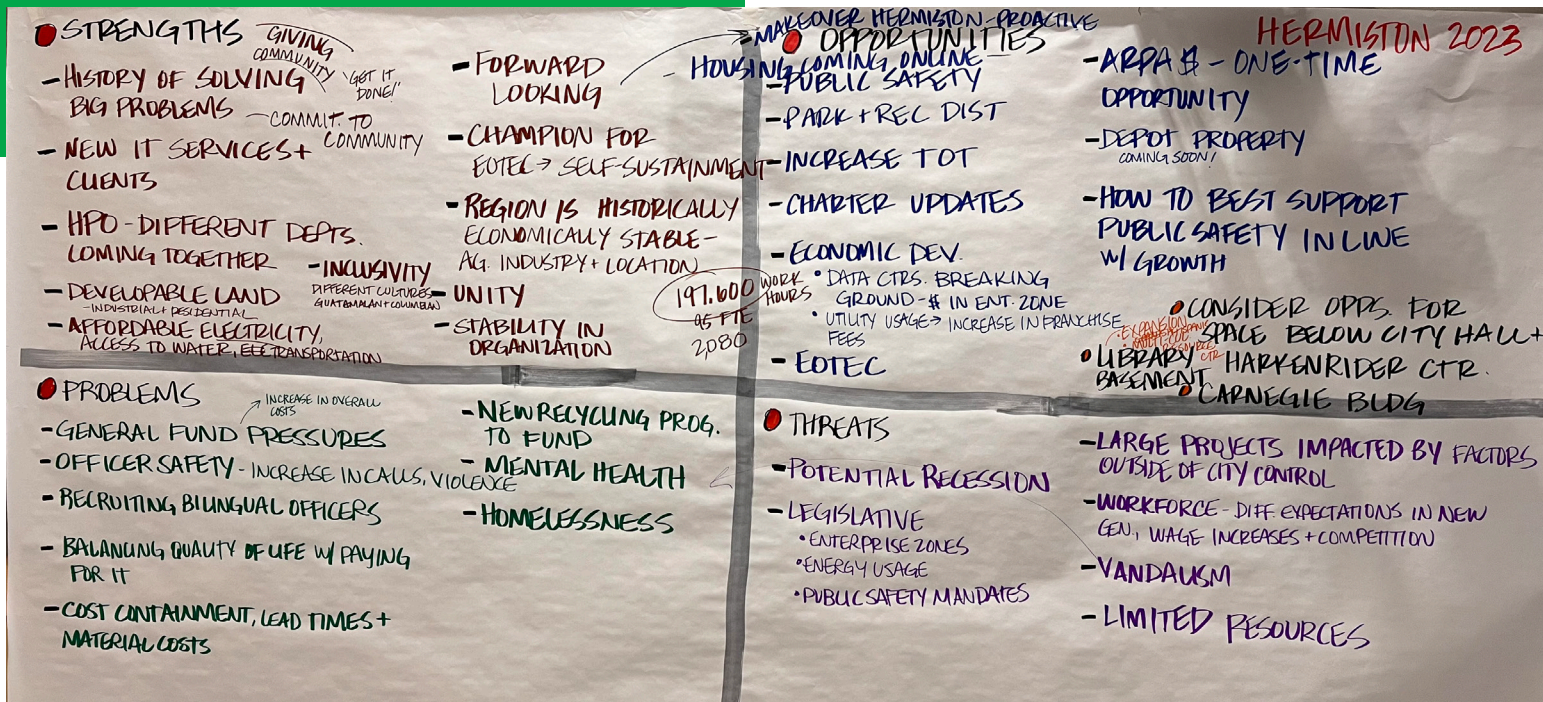 HERMISTON 2023
STRENGTHS
GIVING
COMMUNITY
- HISTORY OF SOLVING
BIG PROBLEMS
"GET IT
DONE!"
- COMMIT. TO
COMMUNITY
- NEW IT SERVICES +
CLIENTS
- HPO - DIFFERENT DEPTS.
COMING TOGETHER
- INCLUSIVITY
DIFFERENT CULTURES
GUATAMALAN + COLUMBIAN
- DEVELOPABLE LAND
- INDUSTRIAL + RESIDENTIAL
- AFFORDABLE ELECTRICITY,
ACCESS TO WATER, ELEC TRANSPORTATION
- FORWARD
LOOKING
- CHAMPION FOR
EOTEC → SELF-SUSTAINMENT
- REGION IS HISTORICALLY
ECONOMICALLY STABLE -
AG. INDUSTRY + LOCATION
- UNITY
- STABILITY IN
ORGANIZATION
197.600 WORK
HOURS
95 FTE
2,080
- MAKEOVER HERMISTON - PROACTIVE
OPPORTUNITIES
- HOUSING COMING ONLINE
- PUBLIC SAFETY
- PARK + REC DIST
- INCREASE TOT
- CHARTER UPDATES
- ECONOMIC DEV.
• DATA CTRS. BREAKING
GROUND - $ IN ENT. ZONE
• UTILITY USAGE → INCREASE IN FRANCHISE
FEES
- EOTEC
- ARPA $ - ONE-TIME
OPPORTUNITY
- DEPOT PROPERTY
COMING SOON!
- HOW TO BEST SUPPORT
PUBLIC SAFETY IN LINE
W/ GROWTH
CONSIDER OPPS. FOR
SPACE BELOW CITY HALL +
HARKENRIDER CTR.
• EXPANSION
RESOURCE
CTR
LIBRARY
BASEMENT
CARNEGIE BLDG
PROBLEMS
INCREASE IN OVERALL
COSTS
- GENERAL FUND PRESSURES
- OFFICER SAFETY - INCREASE IN CALLS, VIOLENCE
- RECRUITING BILINGUAL OFFICERS
- BALANCING QUALITY OF LIFE W/ PAYING
FOR IT
- COST CONTAINMENT, LEAD TIMES +
MATERIAL COSTS
- NEW RECYCLING PROG.
TO FUND
- MENTAL HEALTH
- HOMELESSNESS
THREATS
- POTENTIAL RECESSION
- LEGISLATIVE
• ENTERPRISE ZONES
• ENERGY USAGE
• PUBLIC SAFETY MANDATES
- LARGE PROJECTS IMPACTED BY FACTORS
OUTSIDE OF CITY CONTROL
- WORKFORCE - DIFF EXPECTATIONS IN NEW
GEN., WAGE INCREASES + COMPETITION
- VANDALISM
- LIMITED RESOURCES